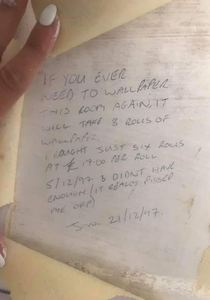 IF YOU EVER
NEED TO WALLPAPER
THIS ROOM AGAIN IT
WILL TAKE 8 ROLLS OF
WALLPAPER
I BOUGHT JUST SIX ROLLS
AT £ 17.00 PER ROLL
5/12/97 & DIDN'T HAVE
ENOUGH (IT REALLY PISSED
ME OFF)
21/12/97.